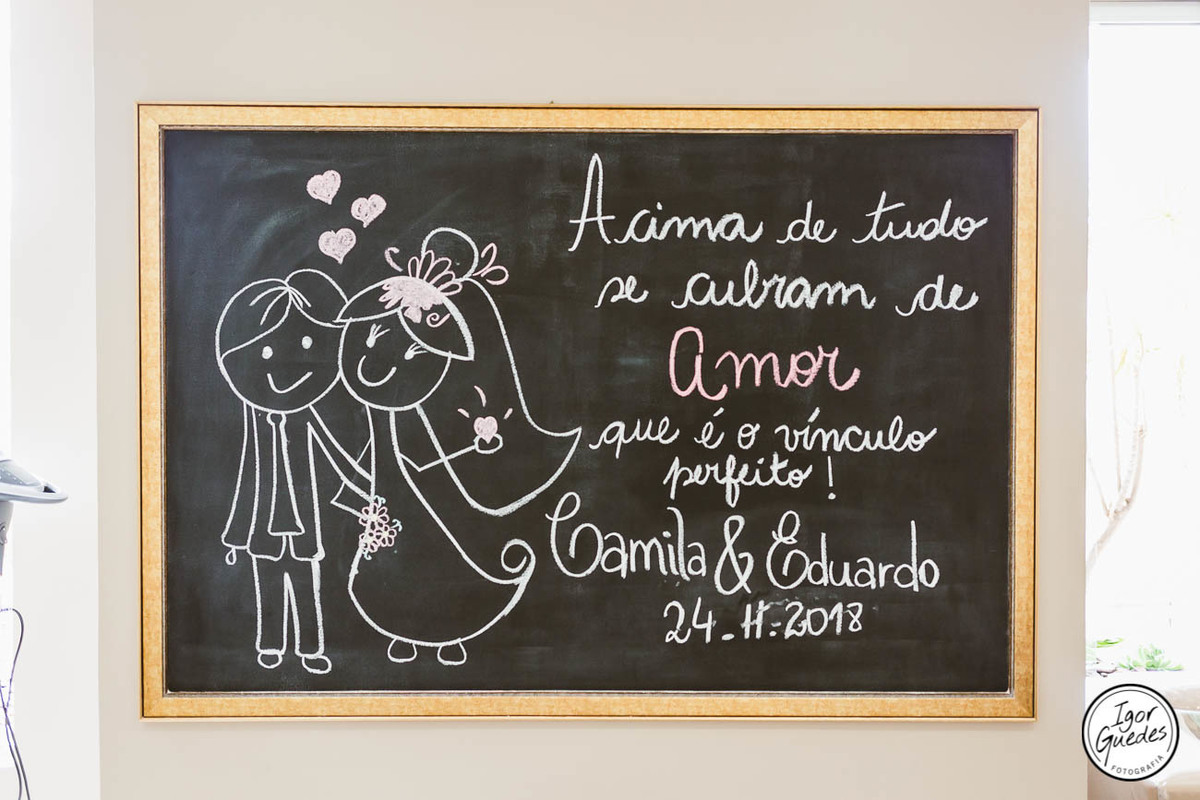 Acima de tudo
se cubram de
Amor
que é o vínculo
perfeito!
Camila & Eduardo
24-11-2018
Igor
Guedes
FOTOGRAFIA